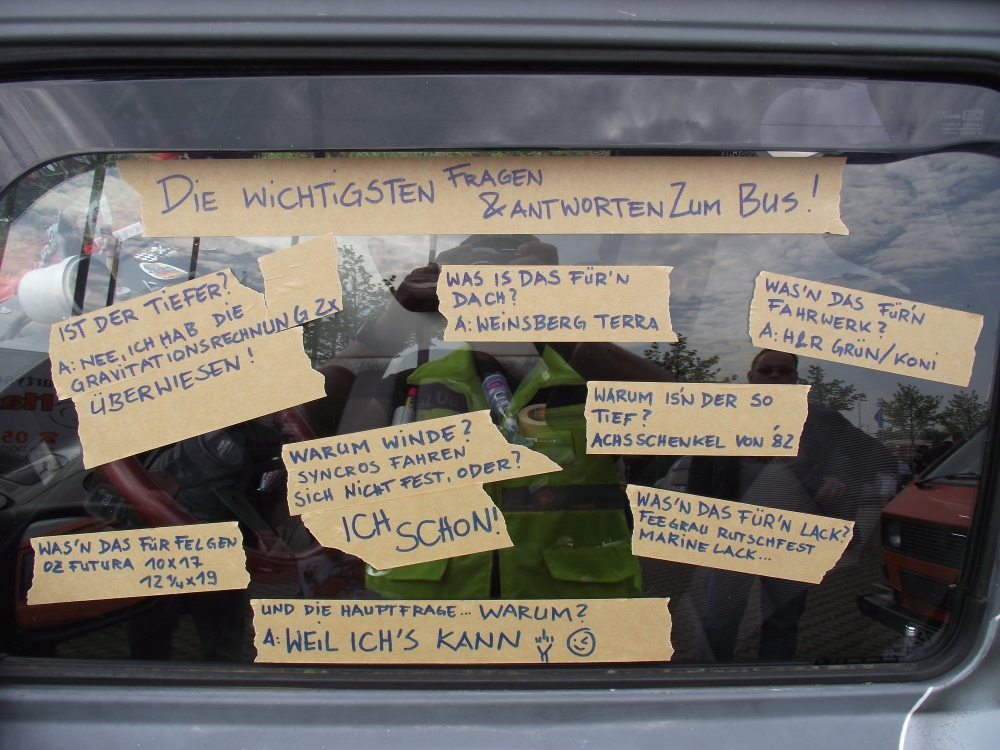 DIE WICHTIGSTEN FRAGEN
& ANTWORTEN ZUM BUS!
IST DER TIEFER?
A: NEE, ICH HAB DIE
GRAVITATIONSRECHNUNG 2x
ÜBERWIESEN!
WAS IS DAS FÜR'N
DACH?
A: WEINSBERG TERRA
WAS'N DAS FÜR'N
FAHRWERK?
A: H&R GRÜN/KONI
WARUM IS'N DER SO
TIEF?
ACHSSCHENKEL VON '82
WARUM WINDE?
SYNCROS FAHREN
SICH NICHT FEST, ODER?
ICH SCHON!
WAS'N DAS FÜR'N LACK?
FEEGRAU RUTSCHFEST
MARINE LACK...
WAS'N DAS FÜR FELGEN
OZ FUTURA 10x17
12 1/4 x19
UND DIE HAUPTFRAGE... WARUM?
A: WEIL ICH'S KANN